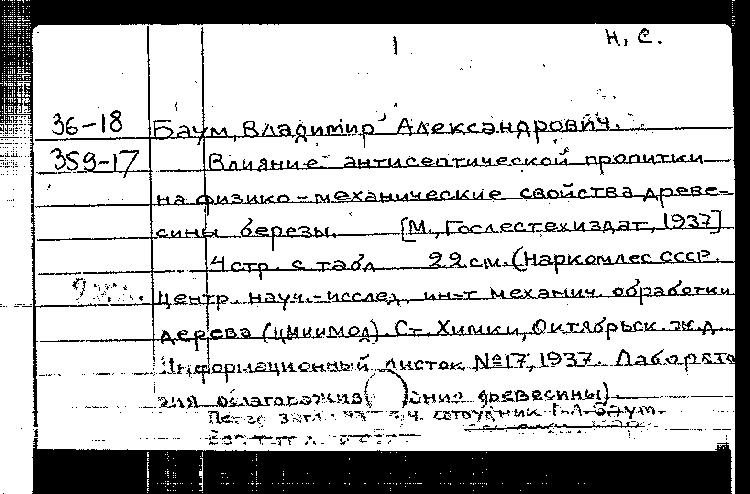 1 Н, С.
36-18 Баум, Владимир Александрович.
359-17 Влияние антисептической пропитки
на физико-механические свойства древе-
сины березы. [М., Гослестехиздат, 1937]
4 стр. с табл 22 см. (Наркомлес СССР.
Центр. науч.-исслед. ин-т механич. обработки
дерева (ЦНИИМОД). Ст. Химки, Октябрьск. ж.д.
Информационный листок №17, 1937. Лаборато
рия облагоражив ания древесины).
сотрудник Баум.